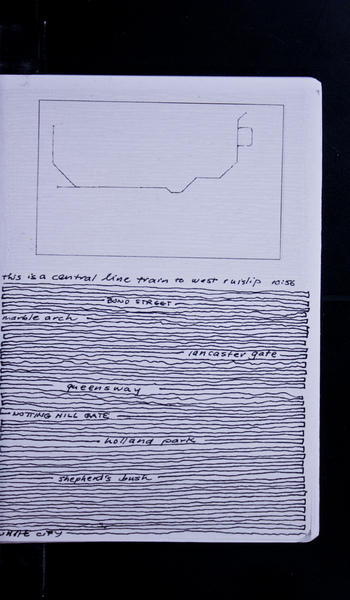 this is a central line train to west ruislip 10:56
BOND STREET
marble arch
lancaster gate
queensway
NOTTING HILL GATE
holland park
shepherd's bush
WHITE CITY